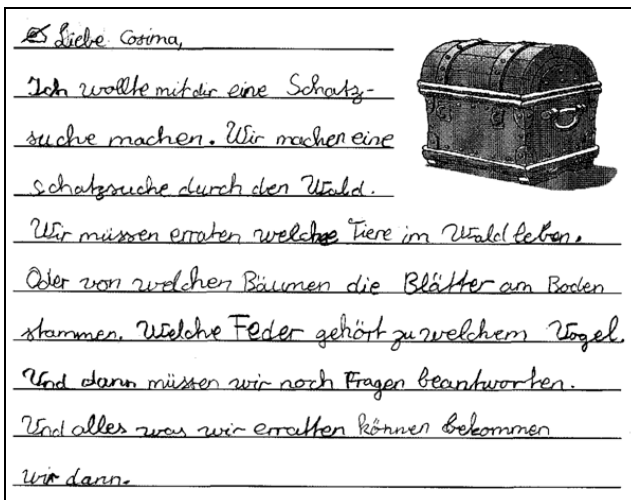 Liebe Cosima,
Ich wollte mit dir eine Schatz-
suche machen. Wir machen eine
schatzsuche durch den Wald.
Wir müssen erraten welche Tiere im Wald leben.
Oder von welchen Bäumen die Blätter am Boden
stammen. Welche Feder gehört zu welchem Vogel.
Und dann müssen wir noch Fragen beantworten.
Und alles was wir erratten können bekommen
wir dann.